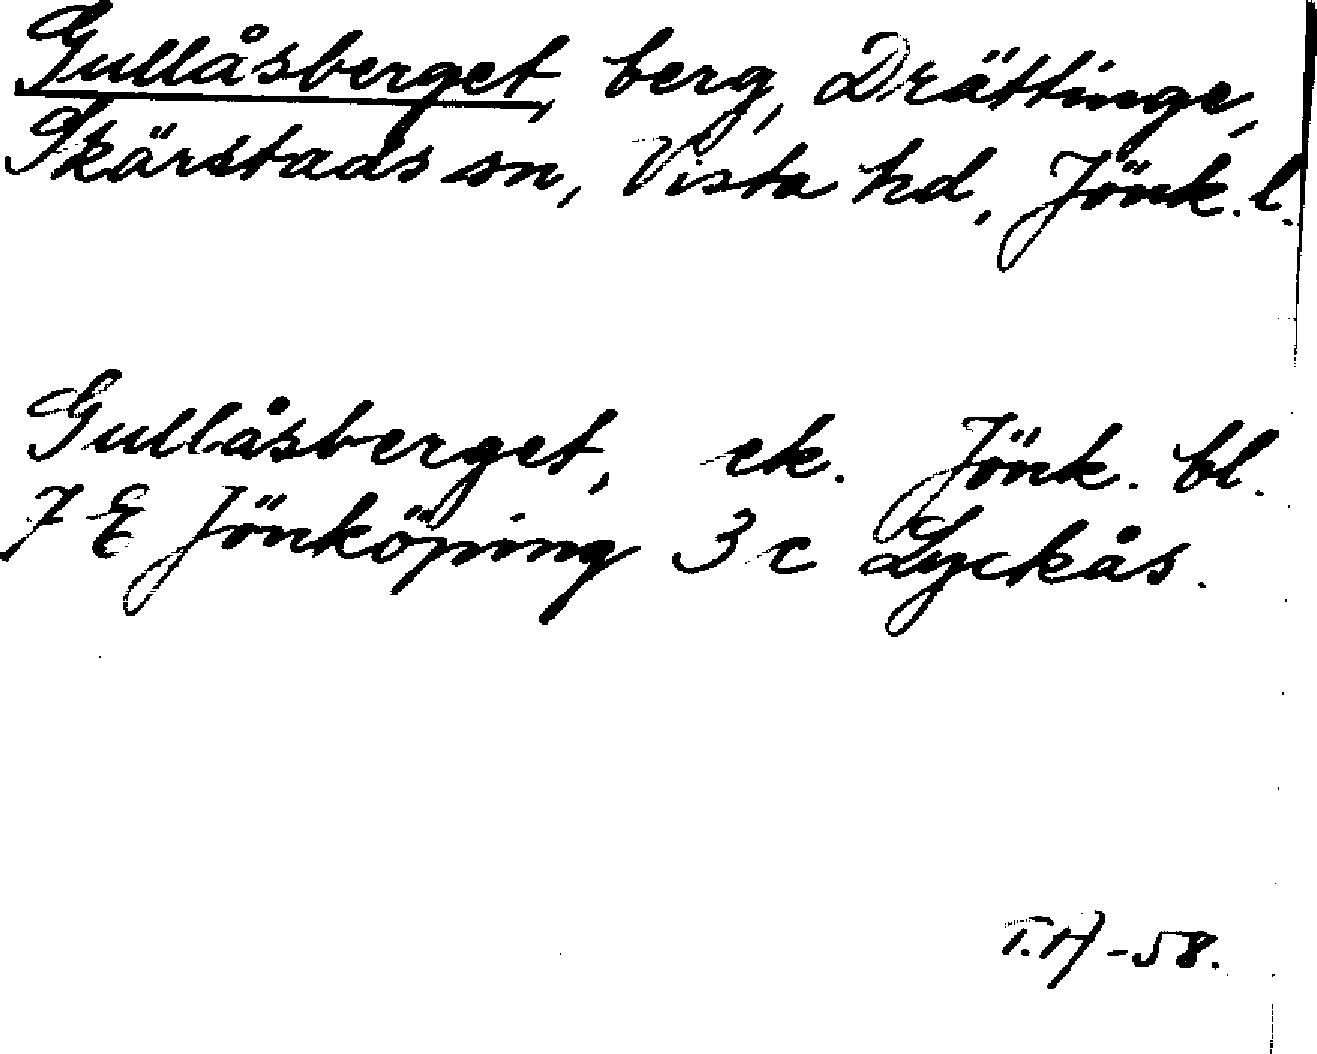 Gullåsberget, berg, Drättinge,
Skärstads sn, Vista hd, Jönk. l.
Gullåsberget, ek. Jönk. bl.
7 E Jönköping 3 c Lyckås.
T.H -58.